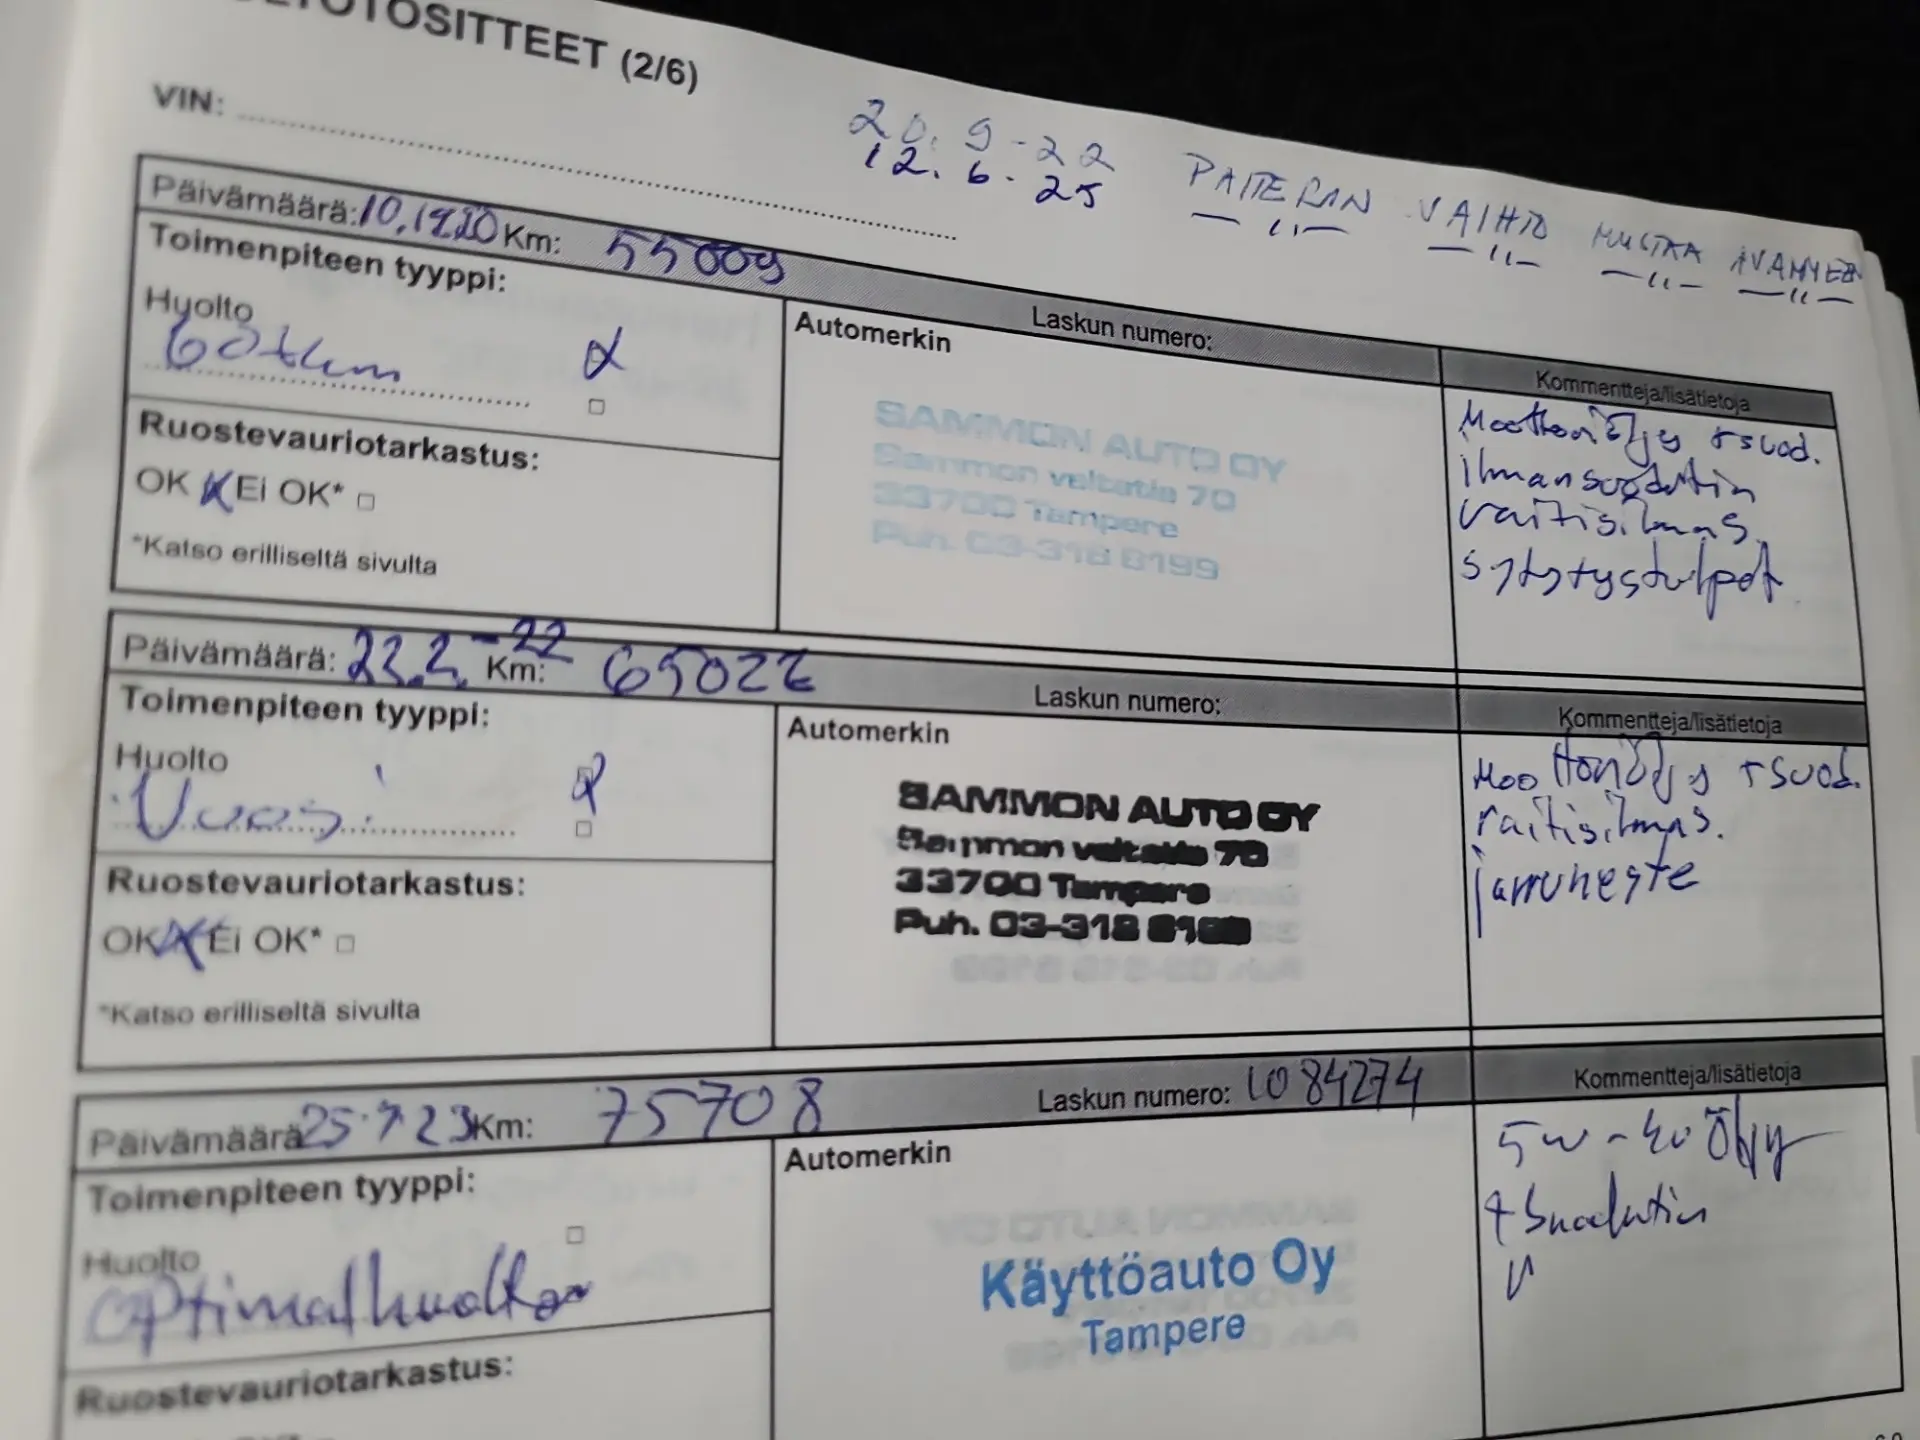 TOTOSITTEET (2/6)
VIN:
20.9-22 PATTERAN VAIHTO MUSTAA AVAIMEEN
12.6-25 —"— —"— —"— —"—
Päivämäärä: Km: 55009
Laskun numero:
Kommentteja/lisätietoja
Toimenpiteen tyyppi:
Huolto
60tkm
Automerkin
SAMMON AUTO OY
Sammon valtatie 70
33700 Tampere
Puh. 03-318 8199
Moottoriöljy + suod.
ilmansuodatin
raitisilmas.
sytytystulpat
Ruostevauriotarkastus:
OK Ei OK* □
*Katso erilliseltä sivulta
Päivämäärä: 22.2.-22 Km: 65022
Laskun numero:
Kommentteja/lisätietoja
Toimenpiteen tyyppi:
Huolto
Vuosi
Automerkin
SAMMON AUTO OY
Sammon valtatie 70
33700 Tampere
Puh. 03-318 8199
Moottoriöljy + suod.
raitisilmas.
jarruneste
Ruostevauriotarkastus:
OK Ei OK* □
*Katso erilliseltä sivulta
Päivämäärä 25.7.23 Km: 75708
Laskun numero: 1084274
Kommentteja/lisätietoja
Toimenpiteen tyyppi:
Huolto
Optimalhuolto
Automerkin
Käyttöauto Oy
Tampere
5w-40 Öljy
+ Suodatin
Ruostevauriotarkastus: